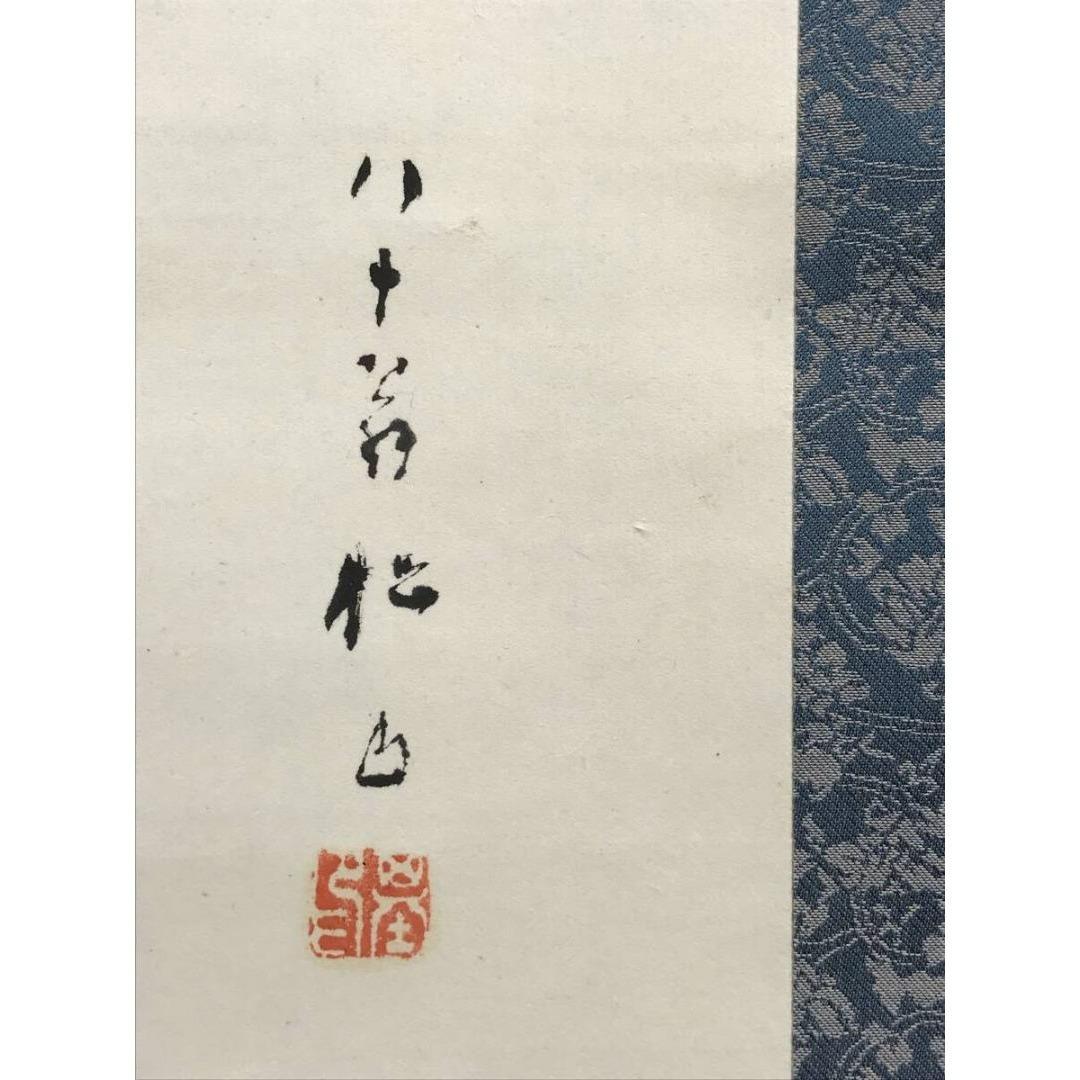 八十翁松山